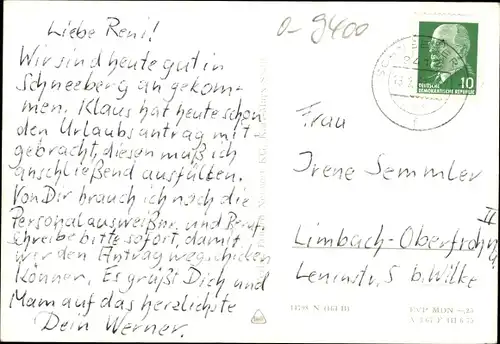 Liebe Reni!
Wir sind heute gut in
Schneeberg an gekom-
men. Klaus hat heute schon
den Urlaubsantrag mit
gebracht, diesen muß ich
anschließend ausfüllen.
Von Dir brauch ich noch die
Personalausweißnr. und Beruf.
Schreibe bitte sofort, damit
wir den Antrag wegschicken
können. Es grüßt Dich und
Mam auf das herzlichste
Dein Werner.
0-9400
10
DEUTSCHE
DEMOKRATISCHE REPUBLIK
Frau
Irene Semmler
Limbach-Oberfrohna
II
Leninstr. 5 b. Wilke